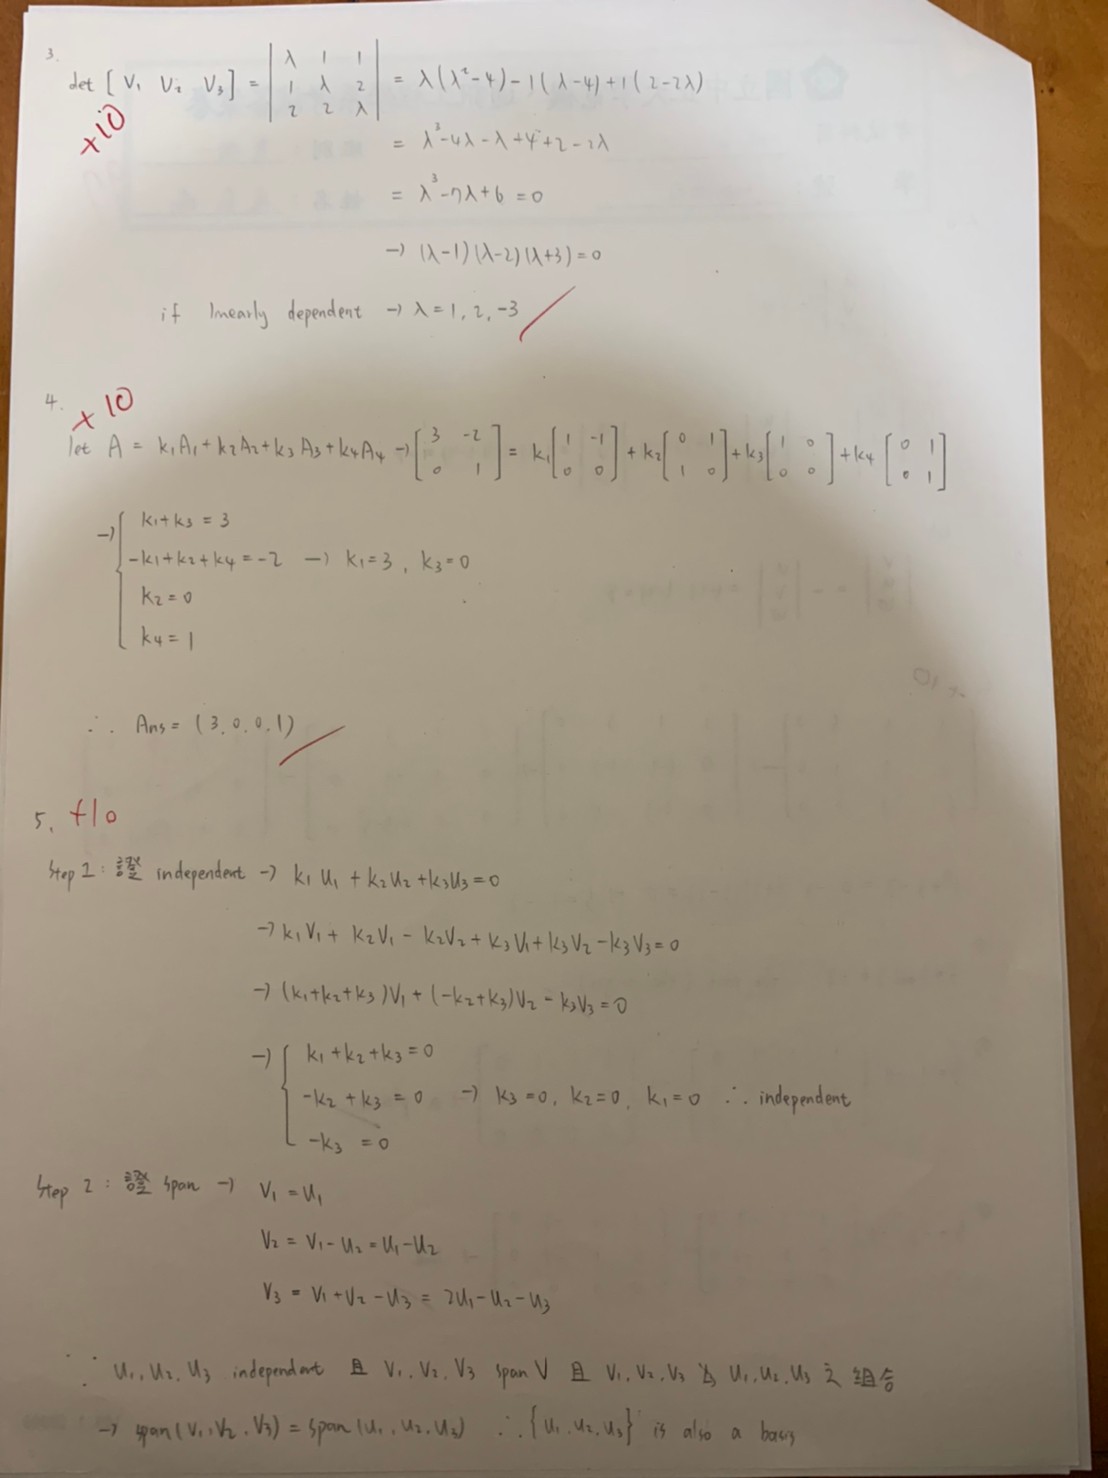 3.
det [ V₁ V₂ V₃ ] = | λ 1 1 | = λ(λ²-4)-1(λ-4)+1(2-2λ)
| 1 λ 2 |
| 2 2 λ |
+10
= λ³-4λ-λ+4+2-2λ
= λ³-7λ+6=0
→ (λ-1)(λ-2)(λ+3)=0
if linearly dependent → λ=1, 2, -3
4.
+10
let A = k₁A₁+k₂A₂+k₃A₃+k₄A₄ → [ 3 -2 ; 0 1 ] = k₁[ 1 -1 ; 0 0 ] + k₂[ 0 1 ; 1 0 ] + k₃[ 1 0 ; 0 0 ] + k₄[ 0 1 ; 0 1 ]
→ { k₁+k₃ = 3
-k₁+k₂+k₄=-2 → k₁=3, k₃=0
k₂=0
k₄=1
∴ Ans = (3,0,0,1)
5. +10
Step 1: 證 independent → k₁u₁+k₂u₂+k₃u₃=0
→ k₁V₁+k₂V₁-k₂V₂+k₃V₁+k₃V₂-k₃V₃=0
→ (k₁+k₂+k₃)V₁+(-k₂+k₃)V₂-k₃V₃=0
→ { k₁+k₂+k₃=0
-k₂+k₃=0 → k₃=0, k₂=0, k₁=0 ∴ independent
-k₃=0
Step 2: 證 span → V₁=u₁
V₂=V₁-u₂=u₁-u₂
V₃=V₁+V₂-u₃=2u₁-u₂-u₃
∵ u₁, u₂, u₃ independent 且 V₁, V₂, V₃ span V 且 V₁, V₂, V₃ 為 u₁, u₂, u₃ 之 組合
→ span(V₁, V₂, V₃) = span(u₁, u₂, u₃) ∴ {u₁, u₂, u₃} is also a basis